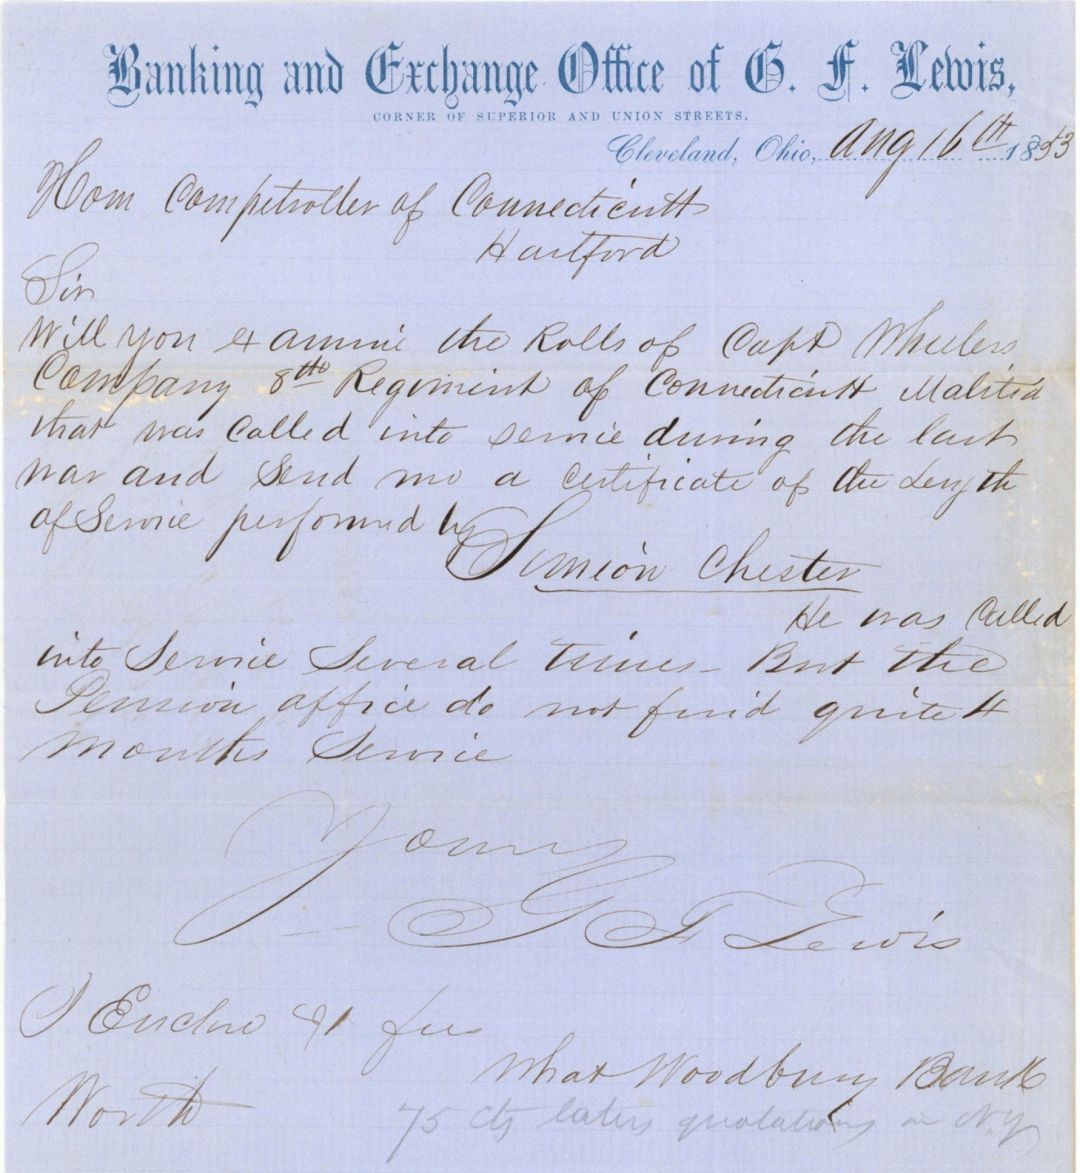 Banking and Exchange Office of G. F. Lewis,
CORNER OF SUPERIOR AND UNION STREETS.
Cleveland, Ohio, Aug 16th 1853
Hom Comptroller of Connecticutt
Hartford
Sir
Will you examine the Rolls of Capt Wheelers
Company 8th Regiment of Connecticutt Malitia
that was Called into service during the last
war and Send me a certificate of the Length
of Service performed by
Simeon Chester
He was Called
into Service Several times - But the
Pension office do not find quite
months Service
Yours
G F Lewis
I Enclose $1 fee
What Woodbury Bank
Worth
75 cts latest quotations in N.Y